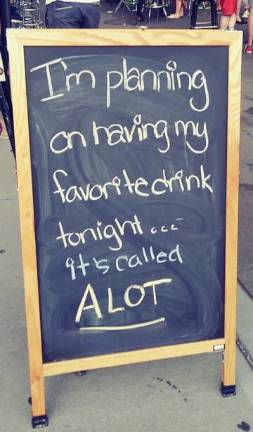 I'm planning
on having my
favorite drink
tonight...
it's called
ALOT